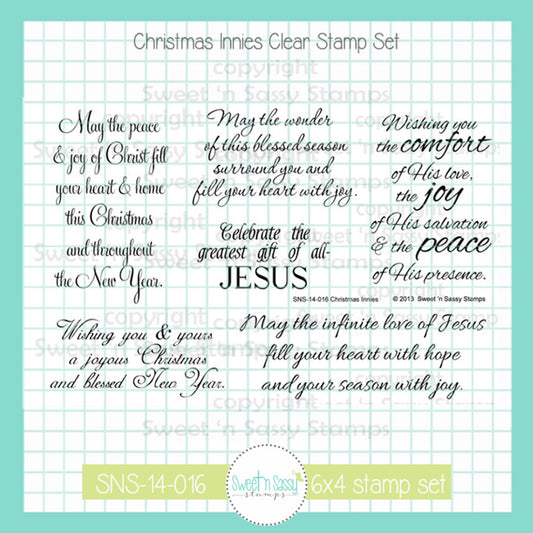 Christmas Innies Clear Stamp Set
copyright
Sweet 'n Sassy Stamps
May the peace
& joy of Christ fill
your heart & home
this Christmas
and throughout
the New Year.
May the wonder
of this blessed season
surround you and
fill your heart with joy.
Wishing you
the comfort
of His love,
the joy
of His salvation
& the peace
of His presence.
Celebrate the
greatest gift of all-
JESUS
SNS-14-016 Christmas Innies © 2013 Sweet 'n Sassy Stamps
Wishing you & yours
a joyous Christmas
and blessed New Year.
May the infinite love of Jesus
fill your heart with hope
and your season with joy.
copyright
Sweet 'n Sassy Stamps
SNS-14-016
Sweet 'n Sassy
stamps
6x4 stamp set